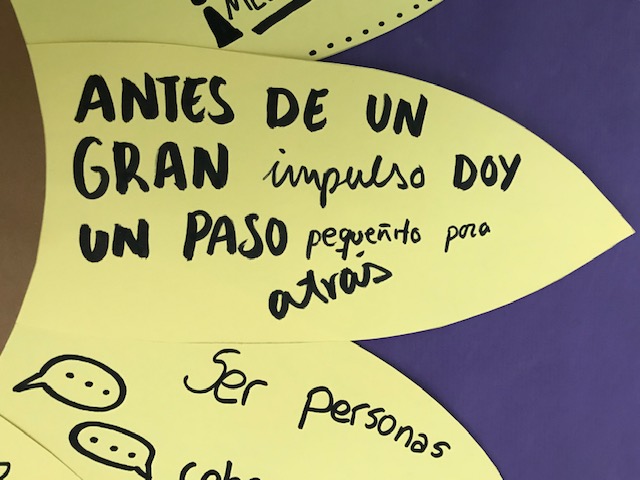 ANTES DE UN
GRAN impulso DOY
UN PASO pequeñito para
atrás
Ser personas